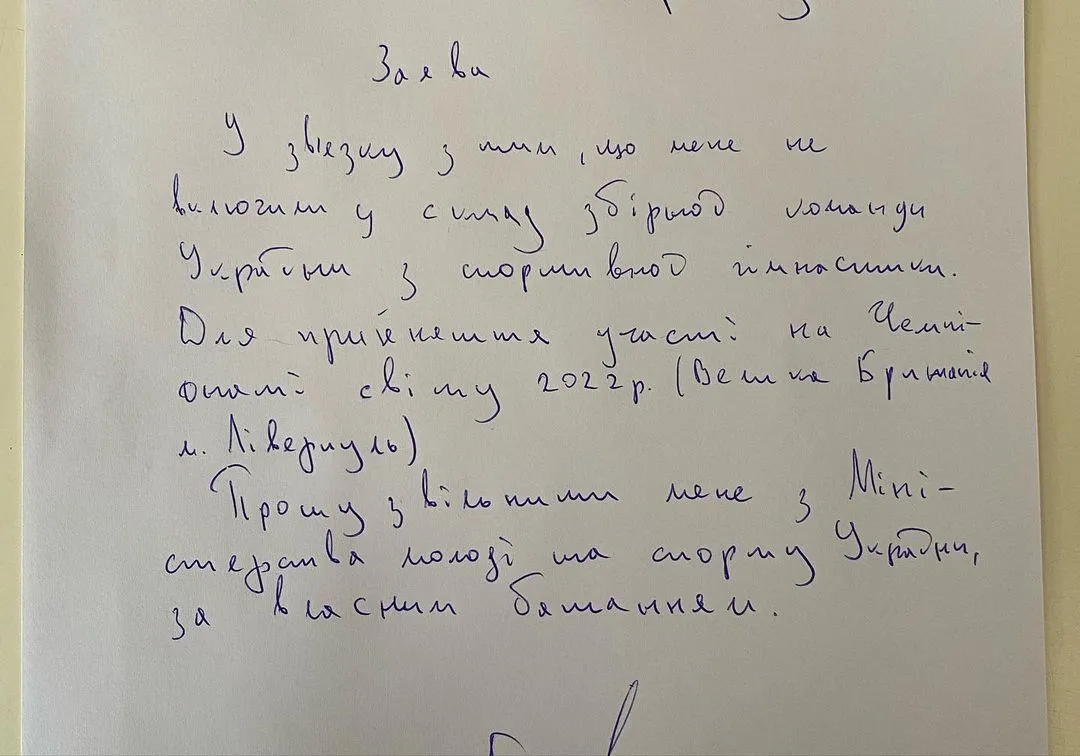 Заява
У звязку з тим, що мене не
включили у склад збірної команди
України з спортивної гімнастики.
Для прийняття участі на Чемпі-
онаті світу 2022р. (Велика Британія
м. Ліверпуль)
Прошу звільнити мене з Міні-
стерства молоді та спорту України,
за власним бажанням.